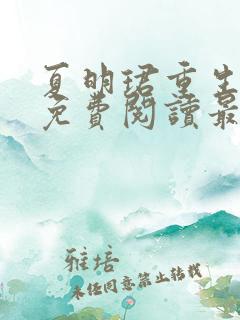 夏明珺重生
免費閱讀最
雅培
未经同意禁止转载